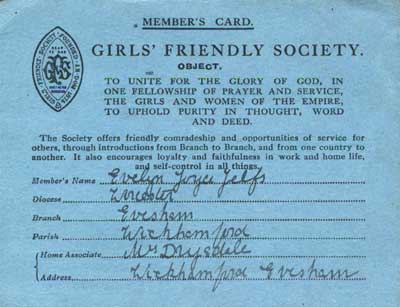 MEMBER'S CARD.
GIRLS' FRIENDLY SOCIETY.
OBJECT.
TO UNITE FOR THE GLORY OF GOD, IN
ONE FELLOWSHIP OF PRAYER AND SERVICE,
THE GIRLS AND WOMEN OF THE EMPIRE,
TO UPHOLD PURITY IN THOUGHT, WORD
AND DEED.
The Society offers friendly comradeship and opportunities of service for
others, through introductions from Branch to Branch, and from one country to
another. It also encourages loyalty and faithfulness in work and home life,
and self-control in all things.
Member's Name Evelyn Joyce Jelfs
Diocese
Branch Evesham
Parish Wickhamford
Home Associate Mrs Drysdale
Address Wickhamford Evesham